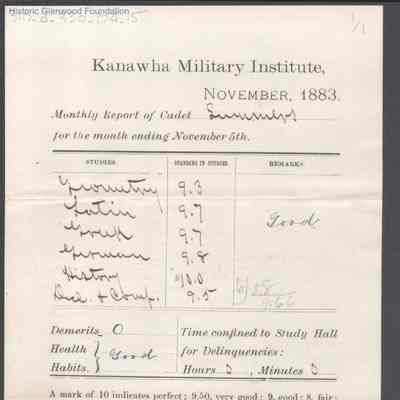 Historic Glenwood Foundation
1/1
Kanawha Military Institute,
NOVEMBER, 1883.
Monthly Report of Cadet Summers
for the month ending November 5th.
STUDIES. STANDING IN STUDIES. REMARKS
Geometry 9.3
Latin 9.7 Good
Greek 9.7
German 9.8
History 10.0
Decl. & Comp. 9.5
Demerits 0 Time confined to Study Hall
Health } Good for Delinquencies:
Habits, Hours 0, Minutes 0
A mark of 10 indicates perfect; 9.50, very good; 9, good; 8, fair;